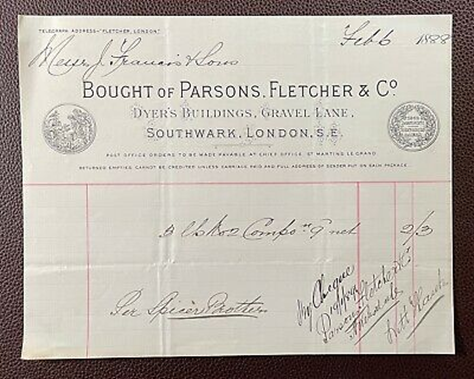 TELEGRAPH ADDRESS—"FLETCHER, LONDON."
Feb 6 1888
Messrs J. Francis & Sons
BOUGHT OF PARSONS, FLETCHER & Co.
DYER'S BUILDINGS, GRAVEL LANE,
SOUTHWARK, LONDON, S.E.
POST OFFICE ORDERS TO BE MADE PAYABLE AT CHIEF OFFICE ST MARTINS LE GRAND.
RETURNED EMPTIES CANNOT BE CREDITED UNLESS CARRIAGE PAID AND FULL ADDRESS OF SENDER PUT ON EACH PACKAGE.
3 lbs No 2 Compo 9 net 2/3
Per Spicer Brothers
By Cheque
Parsons Fletcher & Co
With Thanks